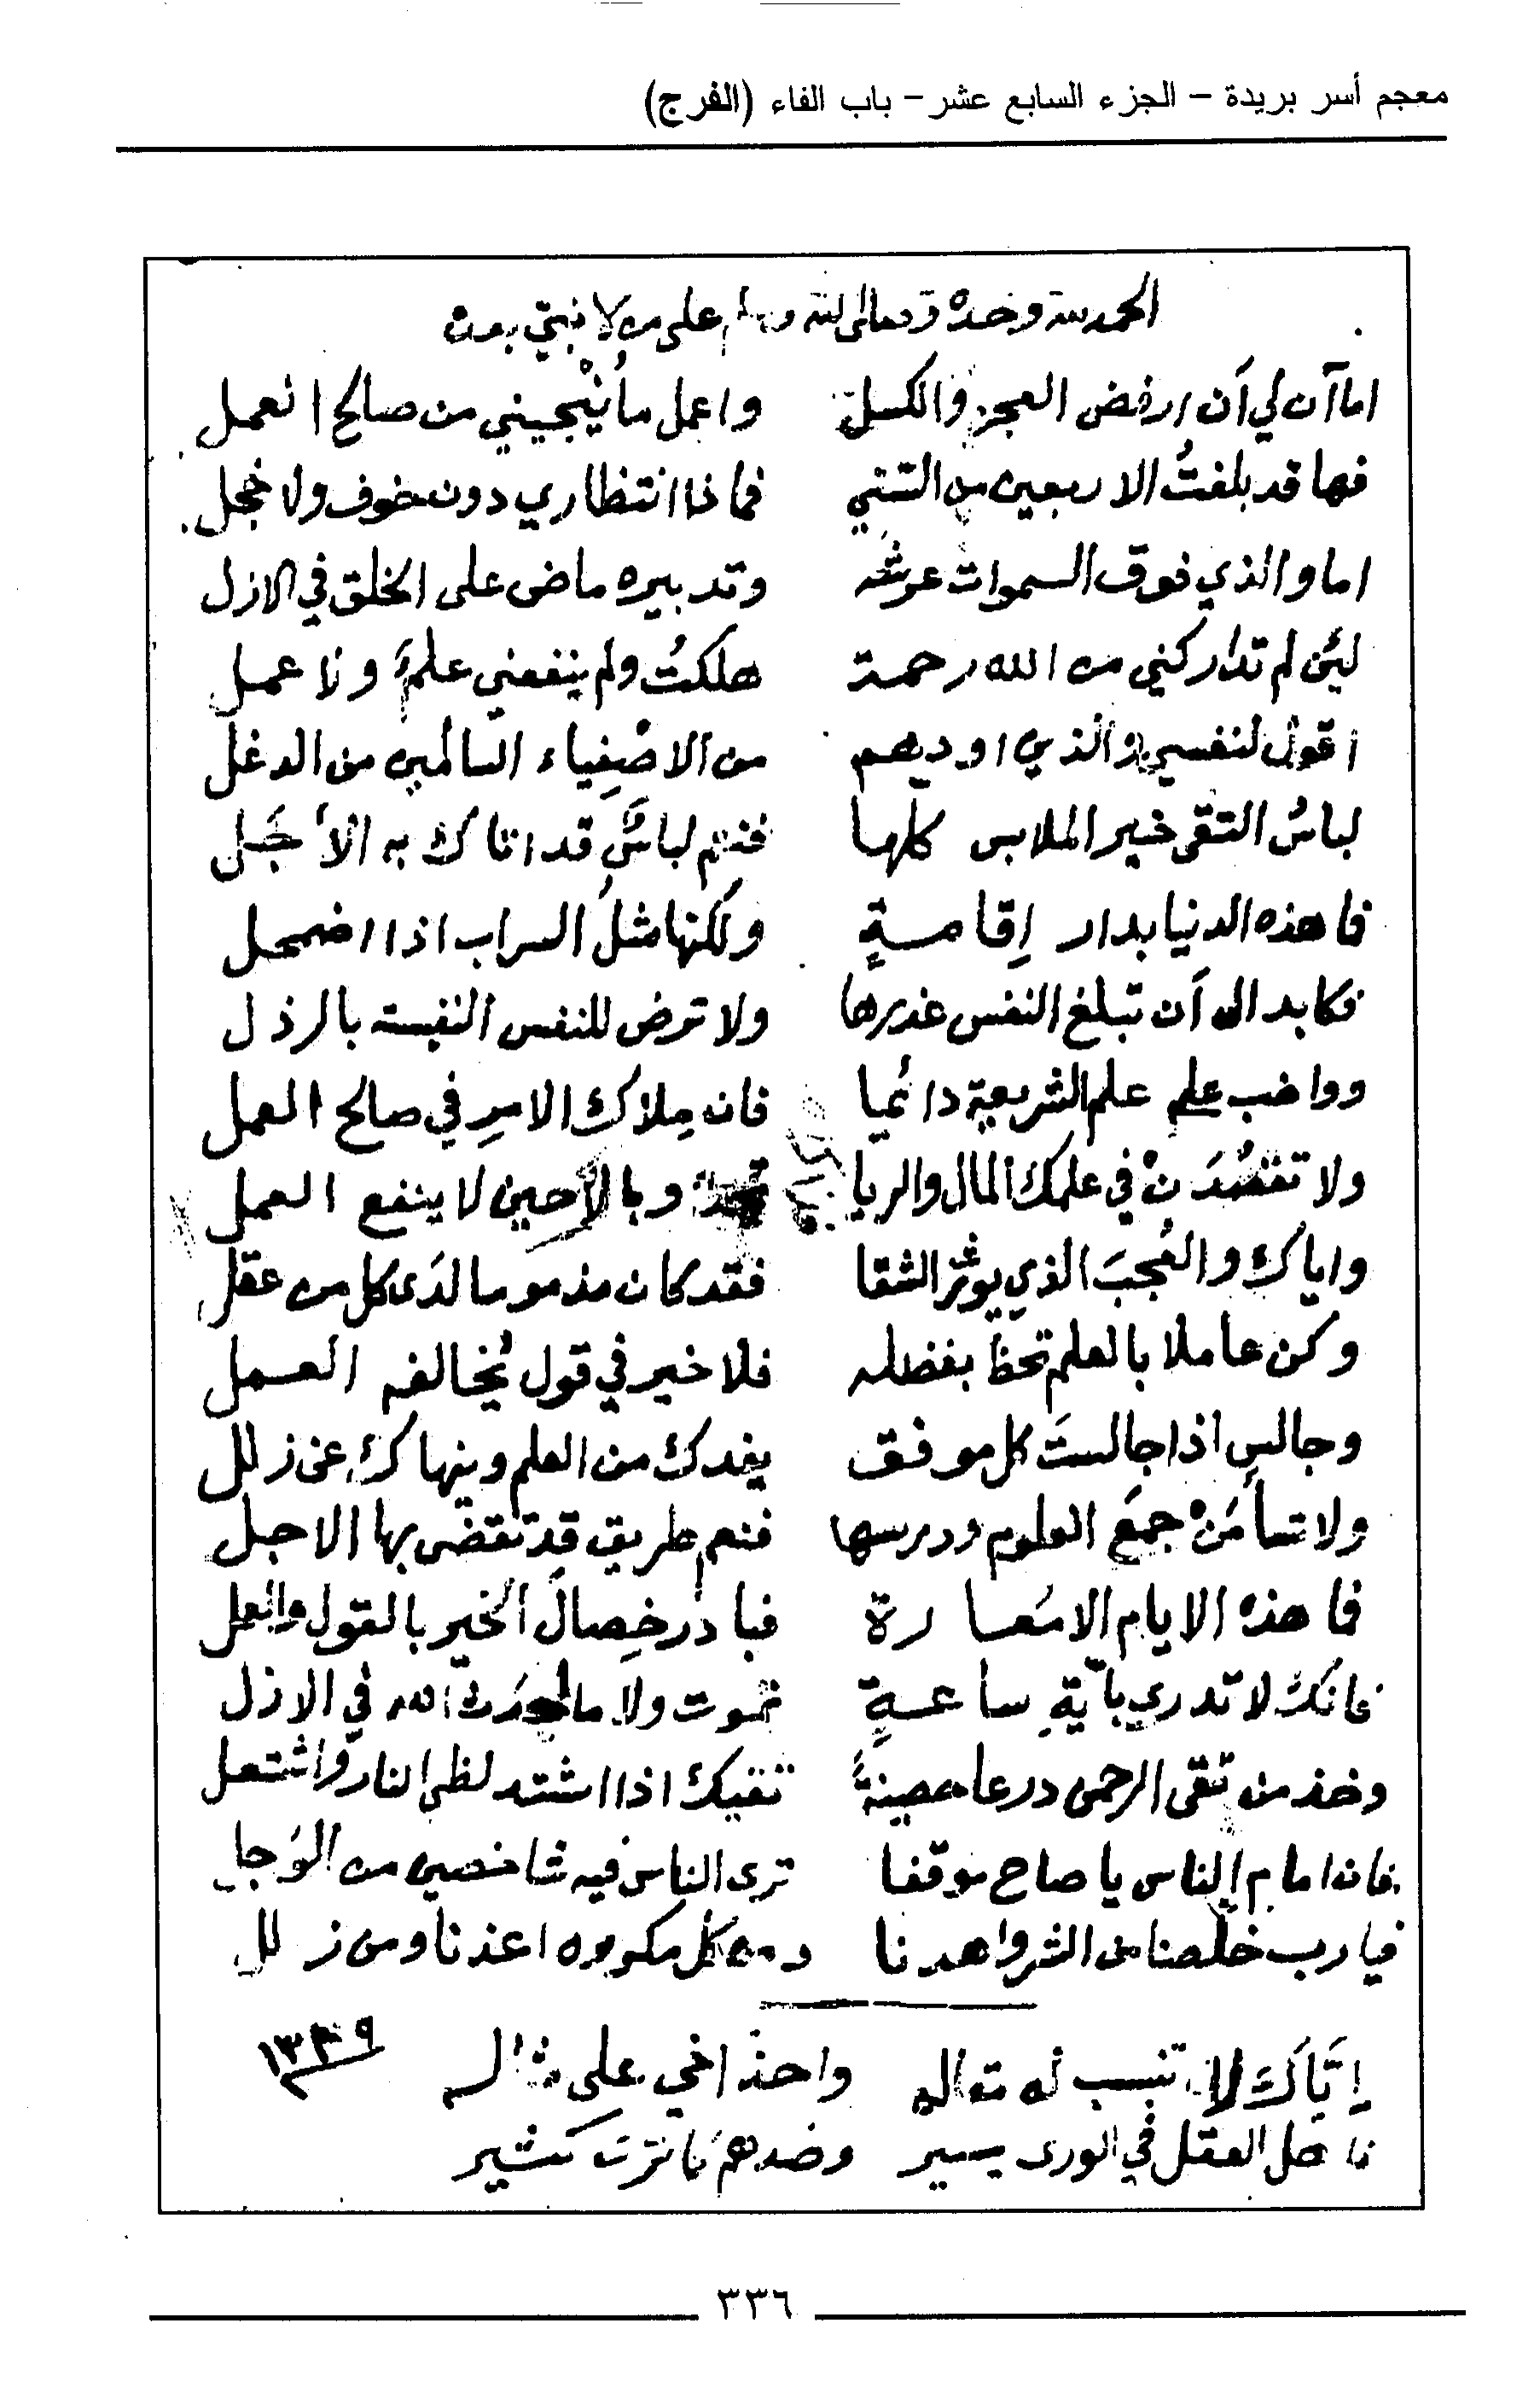 معجم أسر بريدة – الجزء السابع عشر – باب الفاء (الفرج)
الحمد لله وحده وصلى الله وسلم على من لا نبي بعده
اما آن لي أن ارفض العجز والكسل واعمل ما يُنْجيني من صالح العمل
فها قد بلغتُ الاربعين من السني فماذا انتظاري دون خوف ولا خجل
اما والذي فوق السموات عرشه وتدبيره ماض على الخلق في الازل
لئن لم تداركني من الله رحمة هلكتُ ولم ينفعني علمٌ ولا عمل
اقول لنفسي والذي اوديهم من الاصْفِياء السالمين من الدغل
لباسُ التقى خير الملابس كلها فنعم لباسٌ قد اتاك به الأجَل
فما هذه الدنيا بدار إِقامةٍ ولكنها مثلُ السراب اذا اضمحل
فكابد الى أن تبلغ النفس عذرها ولا ترض للنفس النفيسة بالرذل
وواضب على علم الشريعة دائما فان مِلاك الامرِ في صالح العمل
ولا تقصُدَنْ في علمك المال والريا وبالا حين لا ينفع العمل
واياك والعُجبَ الذي يورث الشقا فقد كان مذموما لدَى كل من عقل
وكن عاملا بالعلم تحظ بفضله فلا خير في قول يُخالفه العمل
وجالسِ اذا جالستَ كل موفق يفدك من العلم وينهاك عن زلل
ولا تسأمَنْ جمعَ العلوم ودرسها فنعم طريق قد تقضى بها الاجل
فما هذه الايام الا مُعارة فبادر خِصالَ الخير بالقول والعمل
فانك لا تدري بأيّةِ ساعةٍ تموت ولا ما الله في الازل
وخذ من تقى الرحمن درعا حصينةً تقيك اذا اشتد لظى النار واشتعل
فان امام الناس يا صاح موقفا ترى الناس فيه شاخصين من الوَجل
فيا رب خلّصنا من الشر واهدنا ومن كل مكروه اعذنا ومن زلل
إيَّاك لا تنسب له مقاله واحذ اخي على مثاله ١٣٣٩
كامل العقل في الورى يسير وضدهمُ ما ترت كثير
٣٣٦